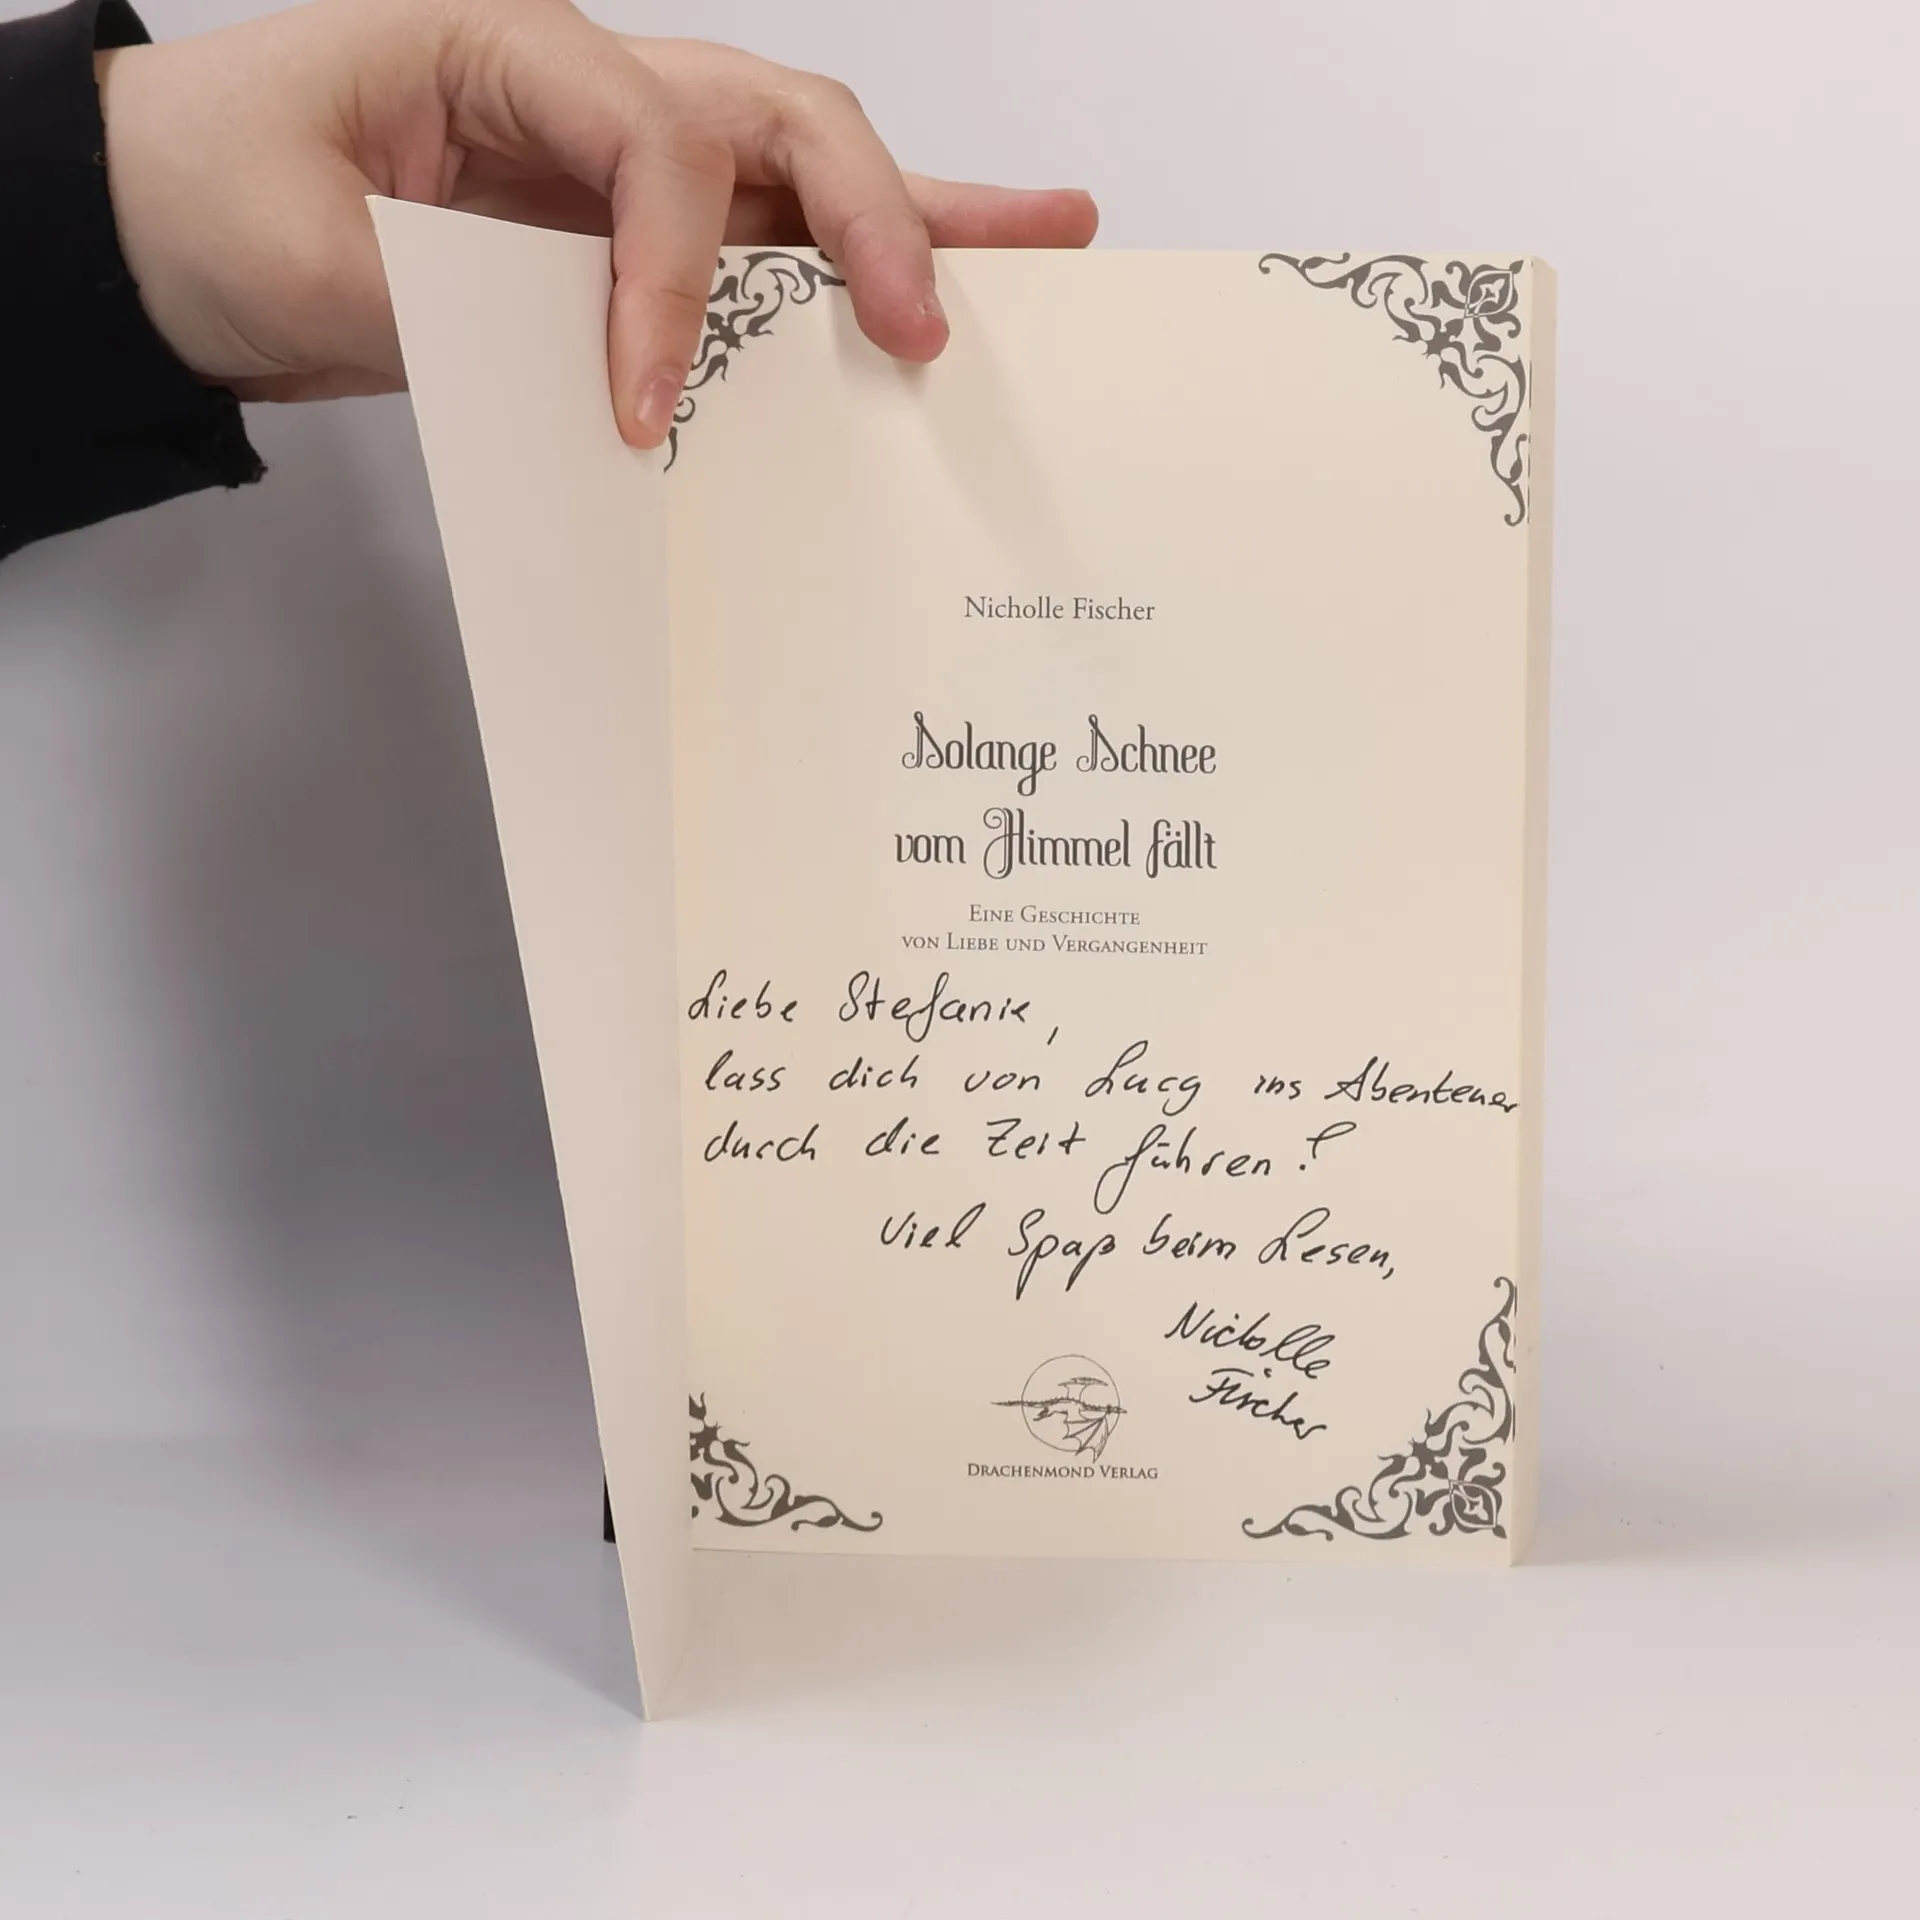 Nicholle Fischer
Solange Schnee
vom Himmel fällt
Eine Geschichte
von Liebe und Vergangenheit
Liebe Stefanie,
lass dich von Lucy ins Abenteuer
durch die Zeit führen!
Viel Spaß beim Lesen,
Nicholle
Fischer
Drachenmond Verlag